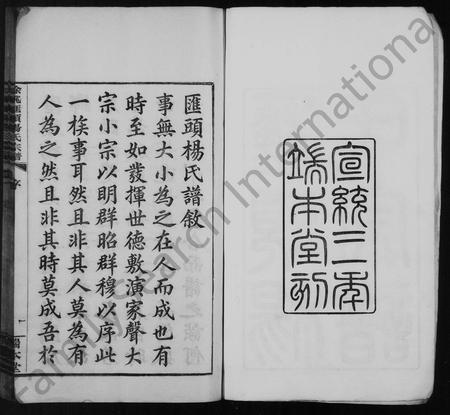 宣統三年
端本堂刊
匯頭楊氏譜敘
事無大小為之在人而成也有
時至如發揮世德敷演家聲大
宗小宗以明群昭群穆以序此
一族事耳然且非其人莫為有
人為之然且非其時莫成吾於
匯頭楊氏宗譜
序
一
本堂
FamilySearch International